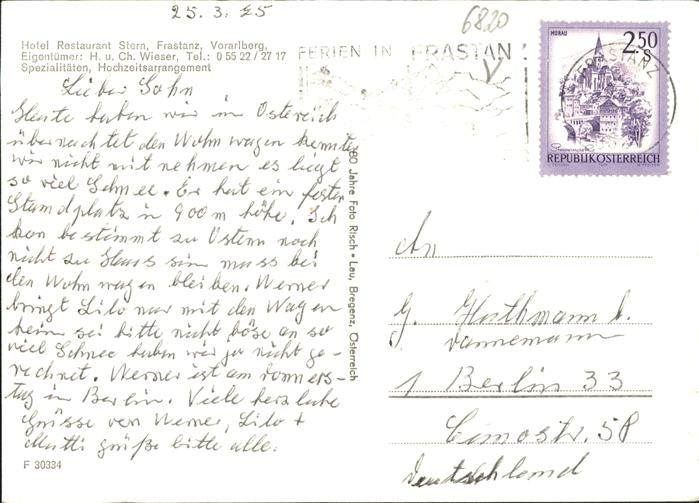 25. 3. 75
6820
Hotel Restaurant Stern, Frastanz, Vorarlberg,
Eigentümer: H. u. Ch. Wieser, Tel.: 0 55 22 / 27 17
Spezialitäten, Hochzeitsarrangement
FERIEN IN FRASTANZ
FRASTANZ
MURAU
2.50
S
REPUBLIK ÖSTERREICH
Lieber Sohn
Heute haben wir in Östereich
übernachtet den Wohnwagen konnten
wir nicht mit nehmen es liegt
so viel Schnee. Er hat ein festen
Standplatz in 900 m höhe. Ich
kan bestimmt zu Ostern noch
nicht zu Haus sin muss bei
den Wohnwagen bleiben. Werner
bringt Lilo nur mit den Wagen
heim sei bitte nicht böse an so
viel Schnee haben wir ja nicht ge-
rechnet. Werner ist am Donners-
tag in Berlin. Viele herzliche
Grüsse von Werner, Lilo +
Mutti grüße bitte alle.
F 30334
80 Jahre Foto Risch • Lau, Bregenz, Österreich
An
G. Horthmann b.
Dannemann
1 Berlin 33
Cunostr. 58
Deutschland